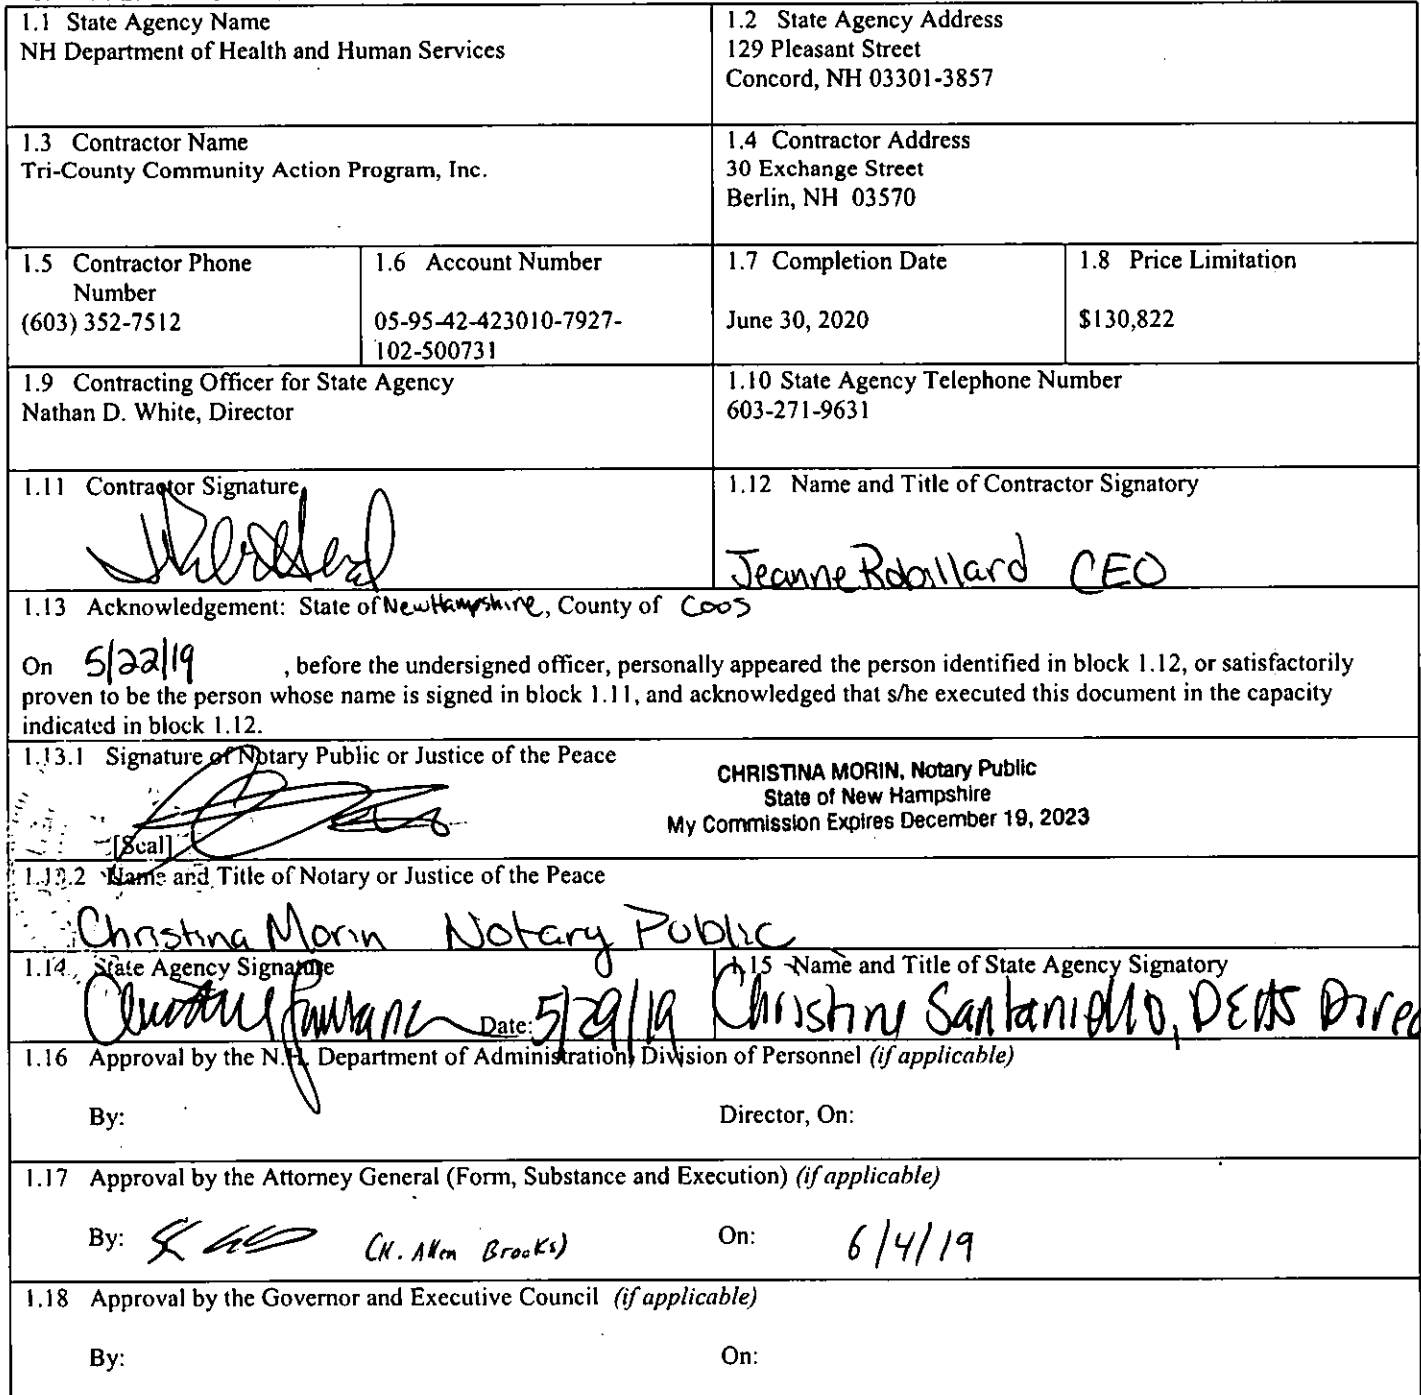 1.1 State Agency Name
NH Department of Health and Human Services
1.2 State Agency Address
129 Pleasant Street
Concord, NH 03301-3857
1.3 Contractor Name
Tri-County Community Action Program, Inc.
1.4 Contractor Address
30 Exchange Street
Berlin, NH 03570
1.5 Contractor Phone
Number
(603) 352-7512
1.6 Account Number
05-95-42-423010-7927-
102-500731
1.7 Completion Date
June 30, 2020
1.8 Price Limitation
$130,822
1.9 Contracting Officer for State Agency
Nathan D. White, Director
1.10 State Agency Telephone Number
603-271-9631
1.11 Contractor Signature
1.12 Name and Title of Contractor Signatory
Jeanne Robillard CEO
1.13 Acknowledgement: State of New Hampshire, County of Coos
On 5/22/19 , before the undersigned officer, personally appeared the person identified in block 1.12, or satisfactorily
proven to be the person whose name is signed in block 1.11, and acknowledged that s/he executed this document in the capacity
indicated in block 1.12.
1.13.1 Signature of Notary Public or Justice of the Peace
[Seal]
CHRISTINA MORIN, Notary Public
State of New Hampshire
My Commission Expires December 19, 2023
1.13.2 Name and Title of Notary or Justice of the Peace
Christina Morin Notary Public
1.14 State Agency Signature
Date: 5/29/19
1.15 Name and Title of State Agency Signatory
Christine Santaniello, DEHS Direc
1.16 Approval by the N.H. Department of Administration, Division of Personnel (if applicable)
By:
Director, On:
1.17 Approval by the Attorney General (Form, Substance and Execution) (if applicable)
By: (N. Allen Brooks)
On: 6/4/19
1.18 Approval by the Governor and Executive Council (if applicable)
By:
On: